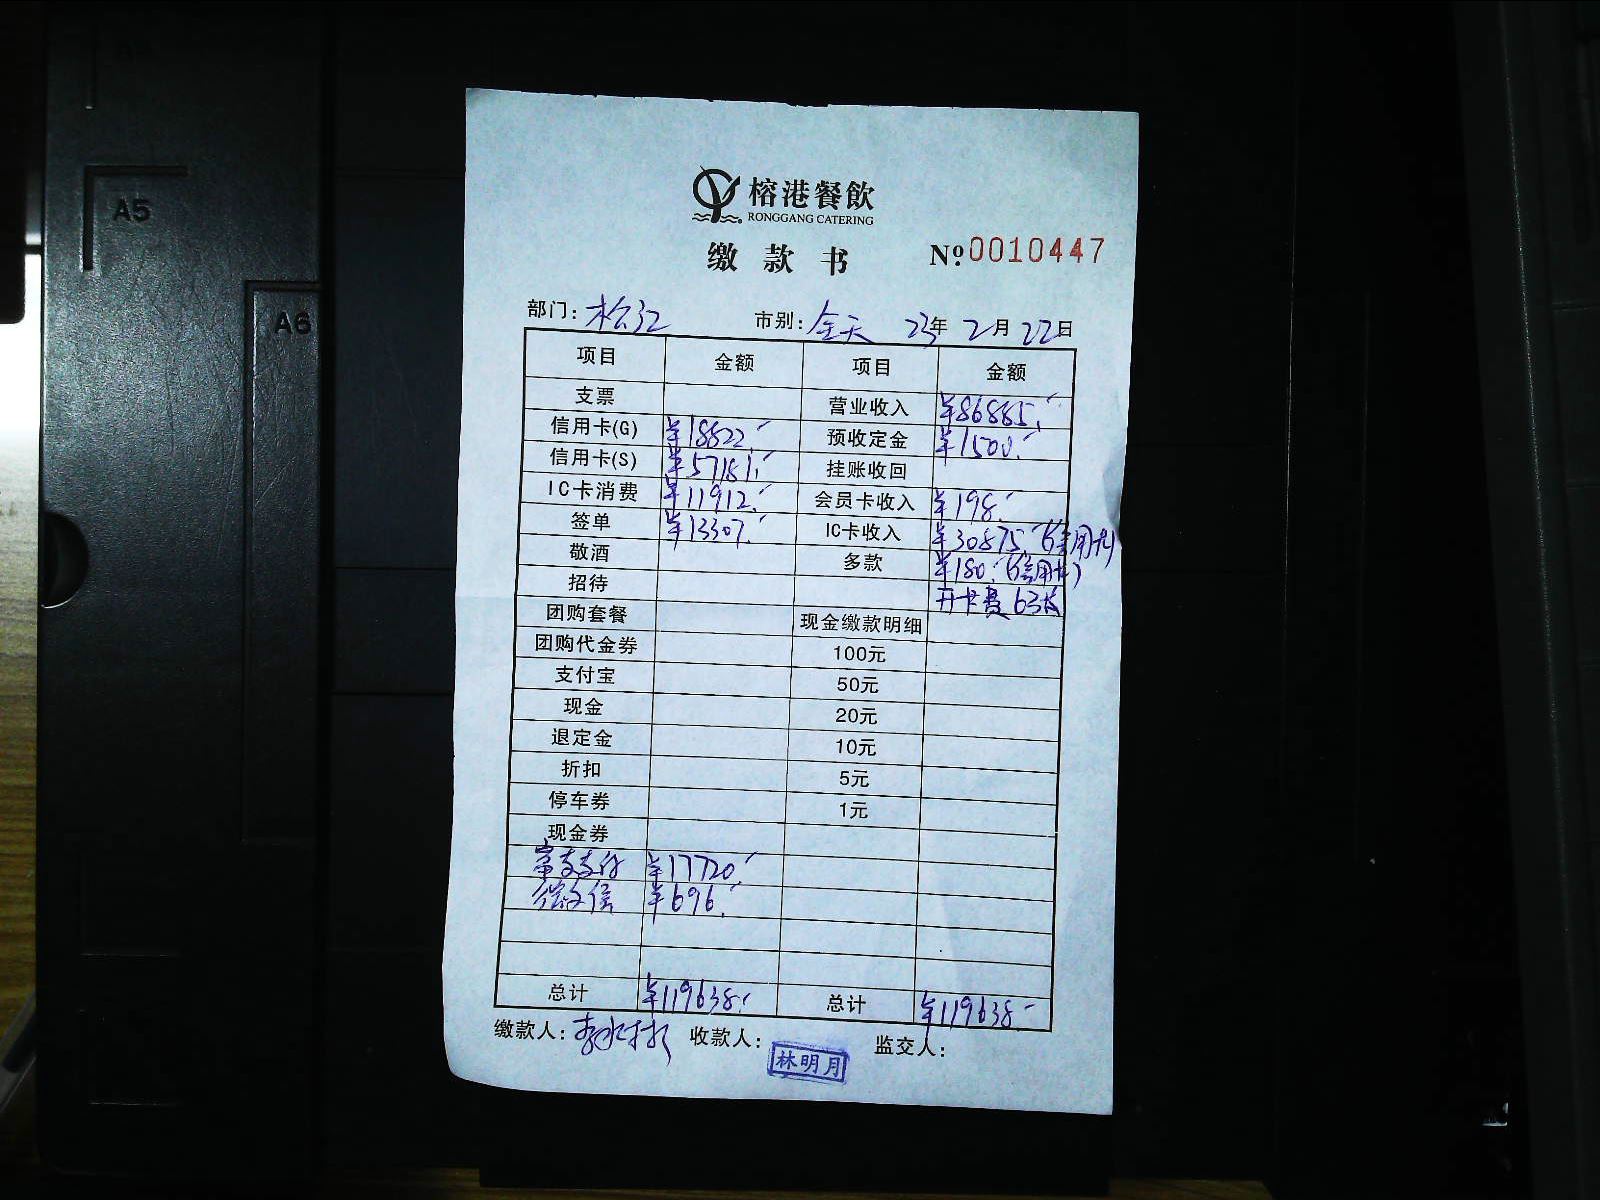 A5
A6
榕港餐飲
RONGGANG CATERING
缴款书 №0010447
部门: 松江 市别: 全天 23年 2月 22日
项目 金额 项目 金额
支票 营业收入 ¥86885.-
信用卡(G) ¥18822.- 预收定金 ¥1500.-
信用卡(S) ¥57181.- 挂账收回
IC卡消费 ¥11912.- 会员卡收入 ¥198.-
签单 ¥13307.- IC卡收入 ¥30875.-(信用卡)
敬酒 多款 ¥180.-(信用卡)
招待 开卡费 63张
团购套餐 现金缴款明细
团购代金券 100元
支付宝 50元
现金 20元
退定金 10元
折扣 5元
停车券 1元
现金券
支付 ¥17720.-
微信 ¥696.-
总计 ¥119638.- 总计 ¥119638.-
缴款人: 收款人: 林明月 监交人: